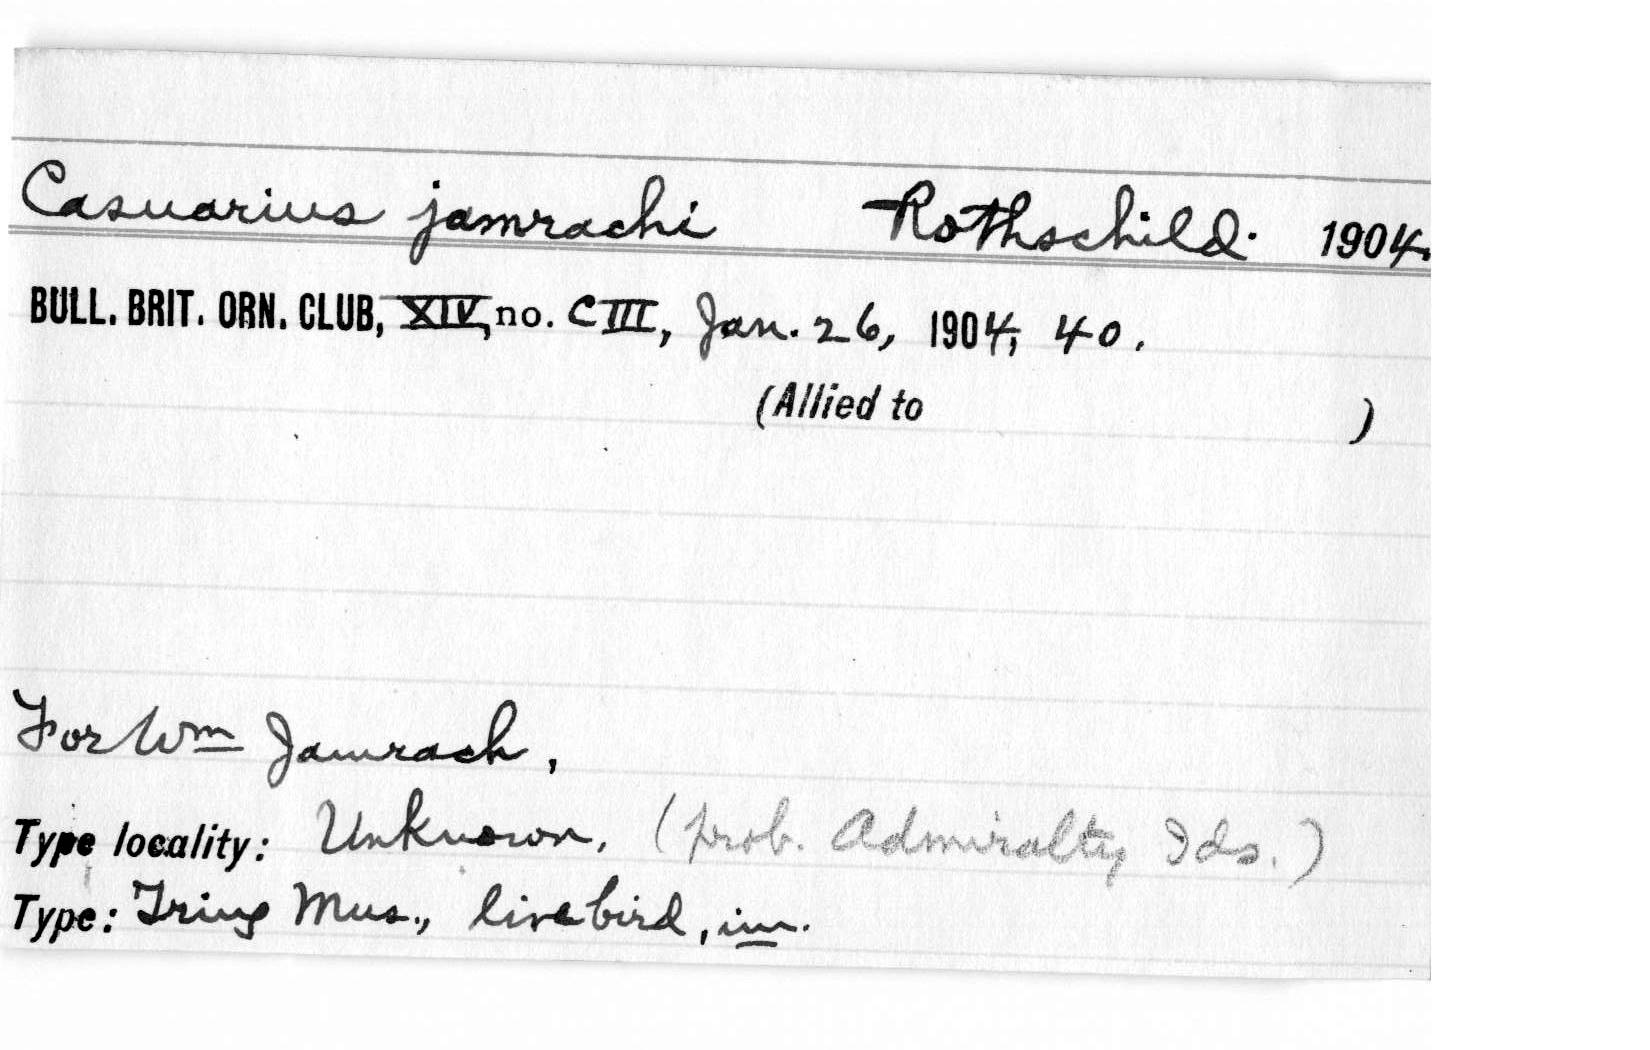 Casuarius jamrachi Rothschild. 1904.
BULL. BRIT. ORN. CLUB, XIV, no. CIII, Jan. 26, 1904, 40.
(Allied to )
For Wm Jamrach,
Type locality: Unknown. (prob. Admiralty Ids.)
Type: Tring Mus., live bird, im.